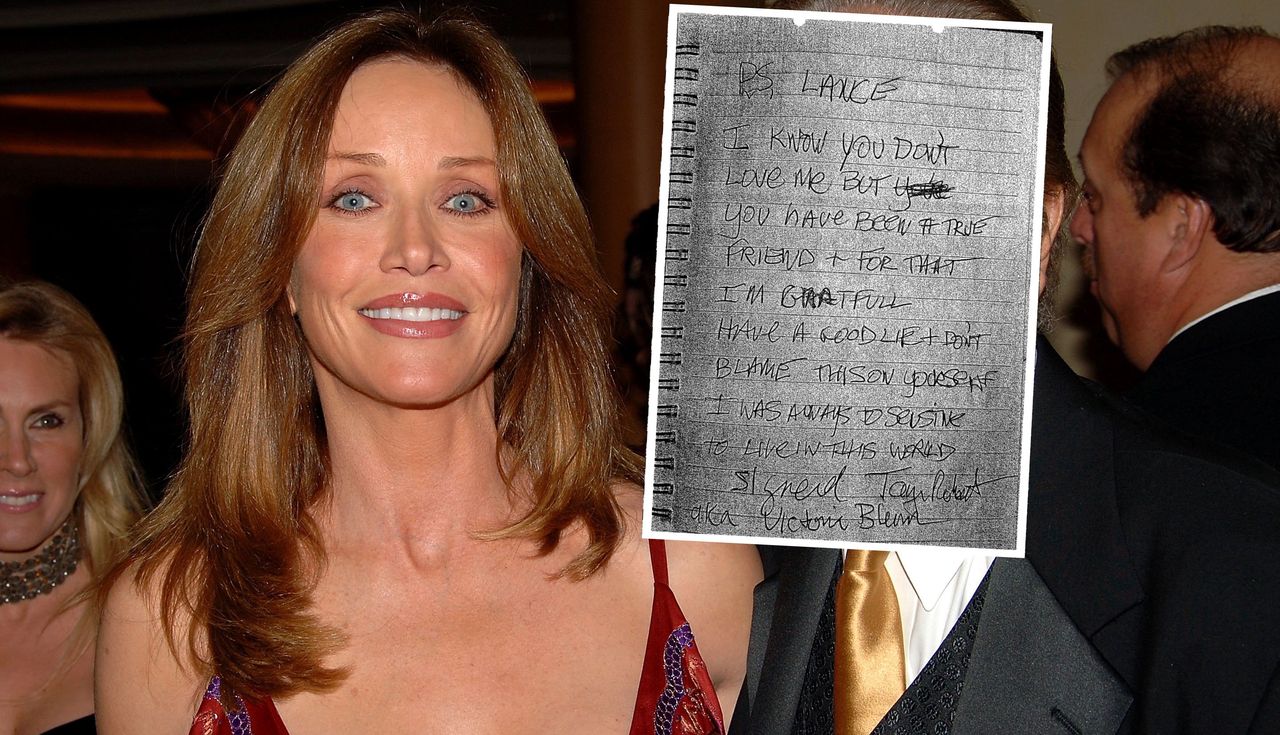 P.S. LANCE
I KNOW YOU DON'T
LOVE ME BUT
YOU HAVE BEEN A TRUE
FRIEND + FOR THAT
I'M GRATFULL
HAVE A GOOD LIE + DON'T
BLAME THIS ON YOURSELF
I WAS ALWAYS TO SENSINE
TO LIVE IN THIS WORLD
Signed
aka Victoria